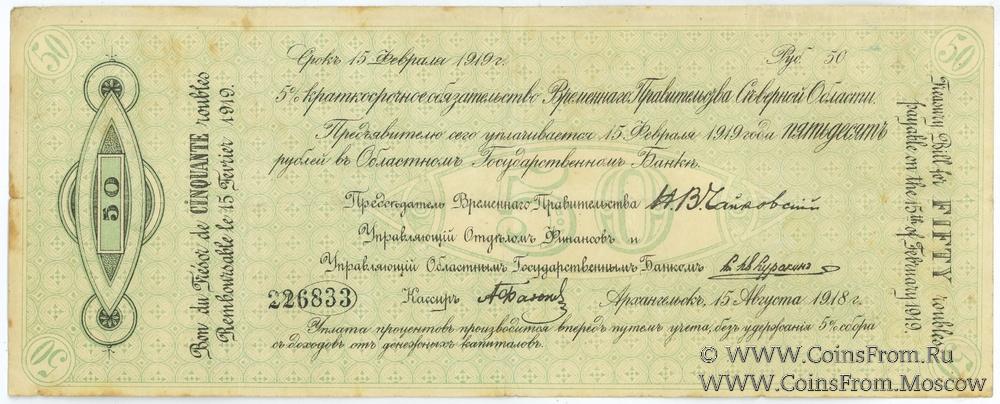 50
50
Срокъ 15 Февраля 1919 г.
Руб. 50
5% краткосрочное обязательство Временнаго Правительства Сѣверной Области.
Предъявителю сего уплачивается 15 Февраля 1919 года пятьдесятъ
рублей въ Областномъ Государственномъ Банкѣ.
50
Предсѣдатель Временнаго Правительства Н.В. Чайковскій
Управляющій Отдѣломъ Финансовъ и
Управляющій Областнымъ Государственнымъ Банкомъ Куракинъ
226833
Кассиръ
Архангельскъ, 15 Августа 1918 г.
Уплата процентовъ производится впередъ путемъ учета, безъ удержанія 5% сбора
съ доходовъ отъ денежныхъ капиталовъ.
50
Bon du Trésor de CINQUANTE roubles
Remboursable le 15 Fevrier 1919.
Treasury Bill for FIFTY roubles
payable on the 15th of February 1919.
50
50
© www.CoinsFrom.Ru
www.CoinsFrom.Moscow